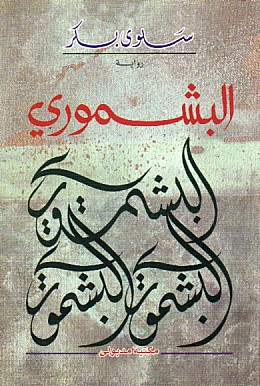 سلوى بكر
رواية
البشموري
البشموري
البشموري البشموري
مكتبة مدبولي